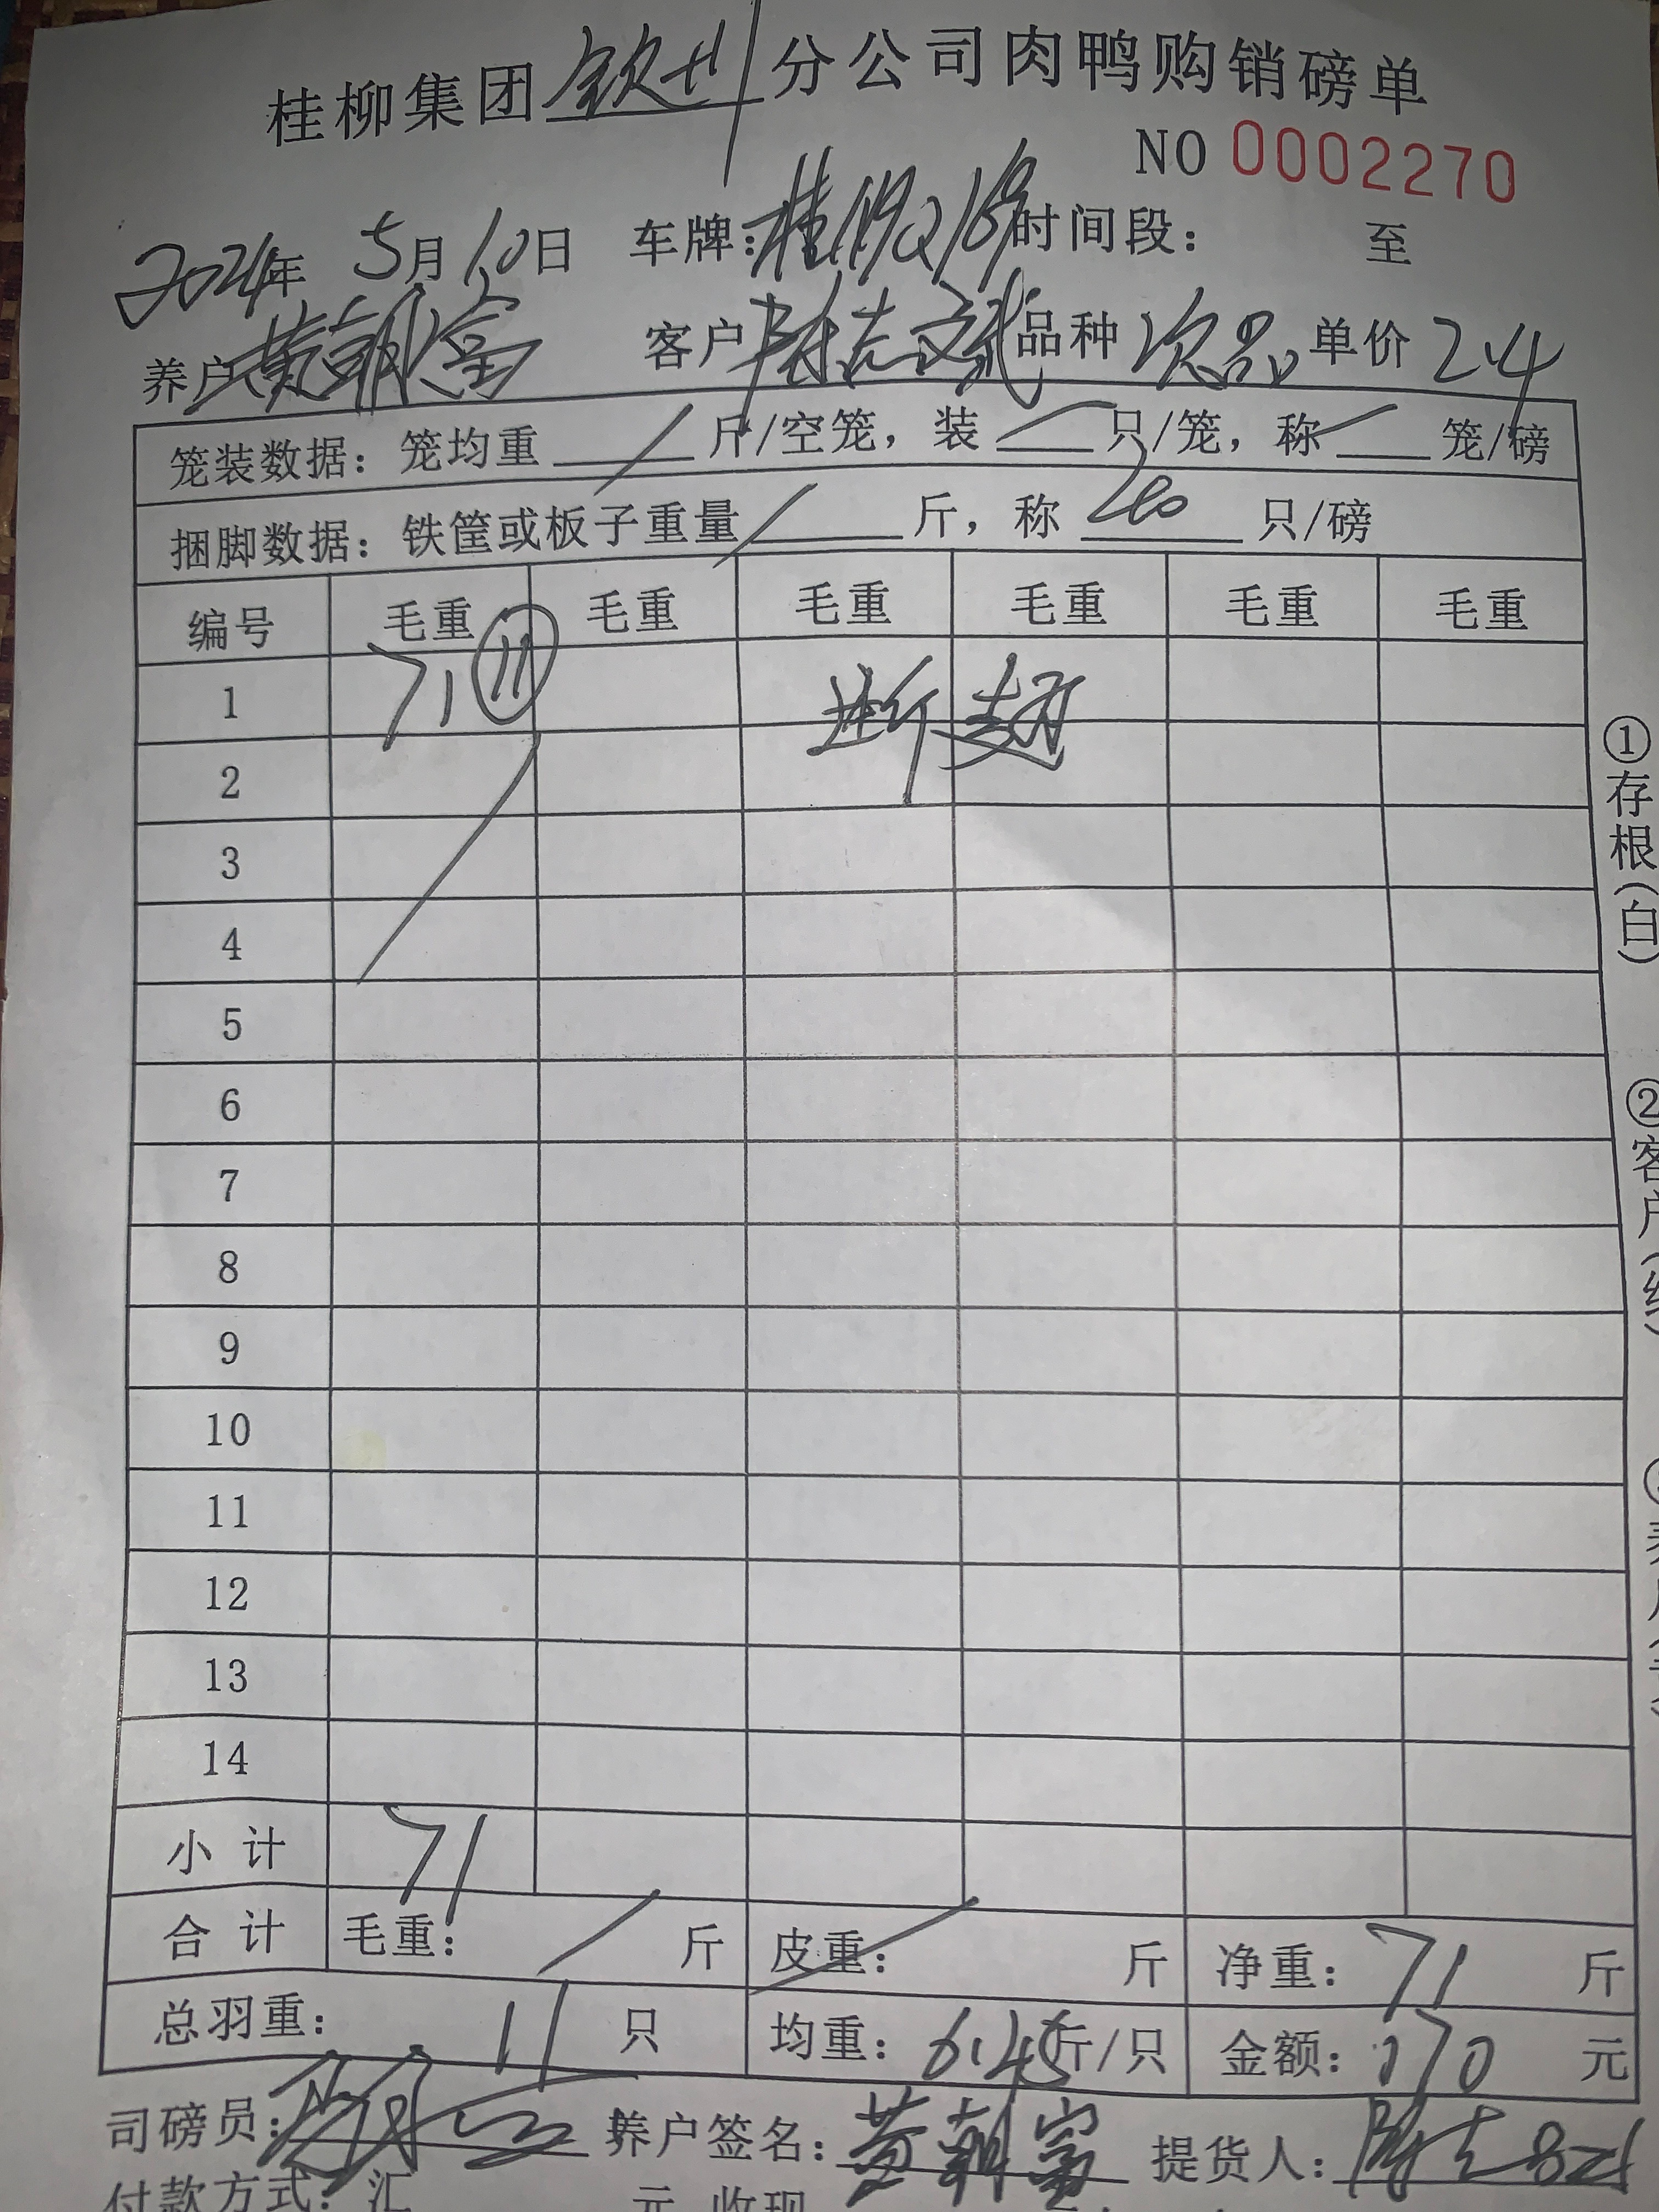 桂柳集团钦州分公司肉鸭购销磅单
NO 0002270
2024年 5月10日 车牌: 时间段: 至
养户黄朝富 客户 品种 次品 单价 2.4
笼装数据: 笼均重 / 斤/空笼, 装 / 只/笼, 称 / 笼/磅
捆脚数据: 铁筐或板子重量 / 斤, 称 只/磅
编号 毛重 毛重 毛重 毛重 毛重 毛重
1 71 ⑪ 断翅
2
3
4
5
6
7
8
9
10
11
12
13
14
小计 71
合计 毛重: / 斤 皮重: / 斤 净重: 71 斤
总羽重: 11 只 均重: 6.45斤/只 金额: 170 元
司磅员: 养户签名: 黄朝富 提货人:
付款方式: 汇 元 收现
①存根(白)
②客户(红)